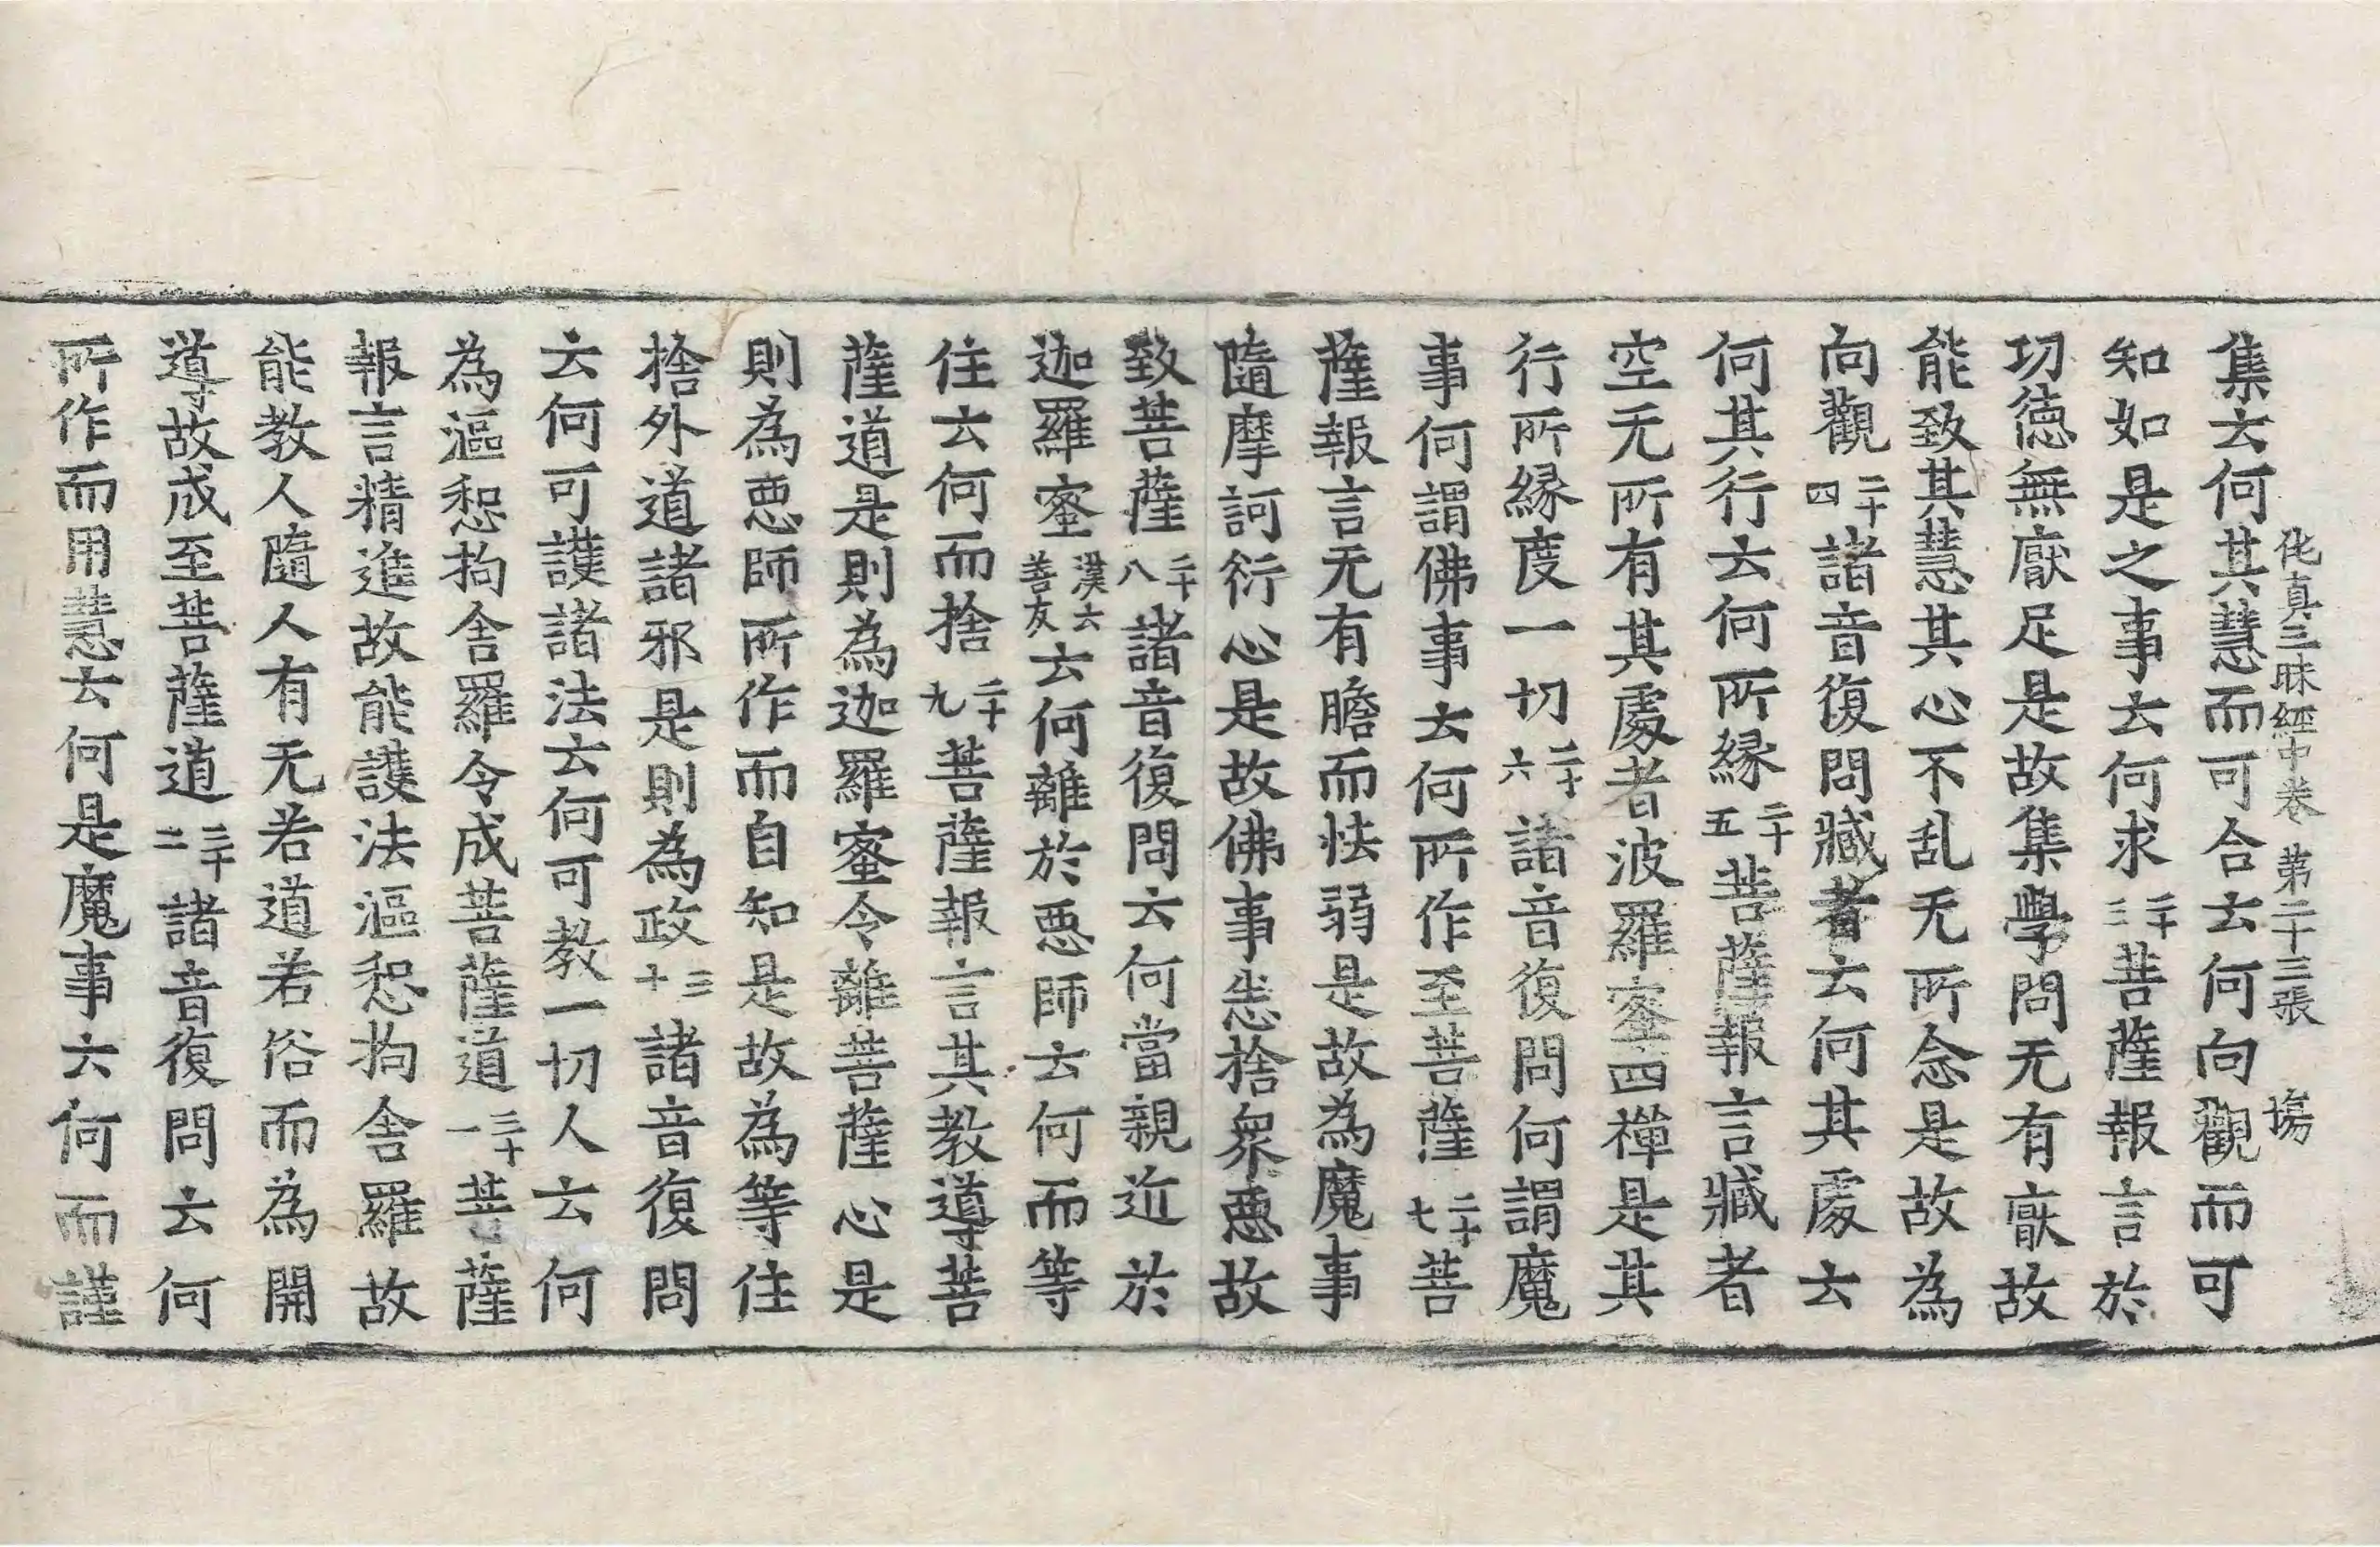 化真三昧經中卷 第二十三張 塲
集云何其慧而可合云何向觀而可
知如是之事云何求二十三菩薩報言於
功德無猒足是故集學問无有猒故
能致其慧其心不乱无所念是故為
向觀二十四諸音復問藏者云何其處云
何其行云何所緣二十五菩薩報言藏者
空无所有其處者波羅蜜四禪是其
行所緣度一切二十六諸音復問何謂魔
事何謂佛事云何所作至菩薩二十七菩
薩報言无有膽而怯弱是故為魔事
隨摩訶衍心是故佛事恙捨眾惡故
致菩薩二十八諸音復問云何當親近於
迦羅蜜漢云善友云何離於惡師云何而等
住云何而捨二十九菩薩報言其教導菩
薩道是則為迦羅蜜令離菩薩心是
則為惡師所作而自知是故為等住
捨外道諸邪是則為政三十諸音復問
云何可護諸法云何可教一切人云何
為漚惒拘舍羅令成菩薩道三十一菩薩
報言精進故能護法漚惒拘舍羅故
能教人隨人有无若道若俗而為開
導故成至菩薩道三十二諸音復問云何
所作而用慧云何是魔事云何而謹